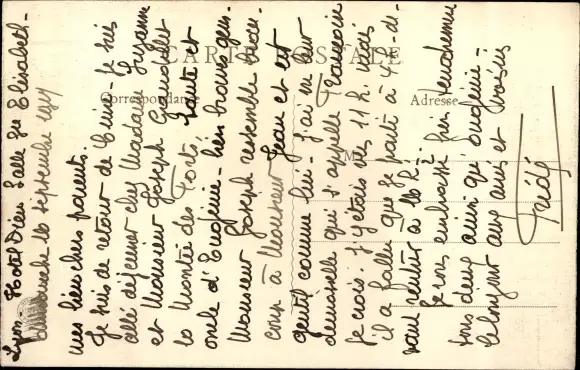 CARTE POSTALE
Correspondance
Adresse
Lyon Hotel Dieu Salle Ste Elisabeth -
dimanche 10 septembre
mes bien chers parents.
Je suis de retour de Cuire - Je suis
allé déjeuner chez Madame Suzanne
et Monsieur Joseph Grandjillet
10 Montée des Forts. Tante et
oncle d'Eugénie - bien braves gens.
Monsieur Joseph ressemble beau-
coup à Monsieur Jean et est
gentil comme lui - J'ai vu leur
demoiselle qui s'appelle Francine
je crois. J'y étais dès 11 h. mais
il a fallu que je parte à 4 h - de-
vant rentrer à 16 h ½
Je vous embrasse bien tendrement
tous deux ainsi qu'Eugénie -
le bonjour aux amis et voisins
Frédé